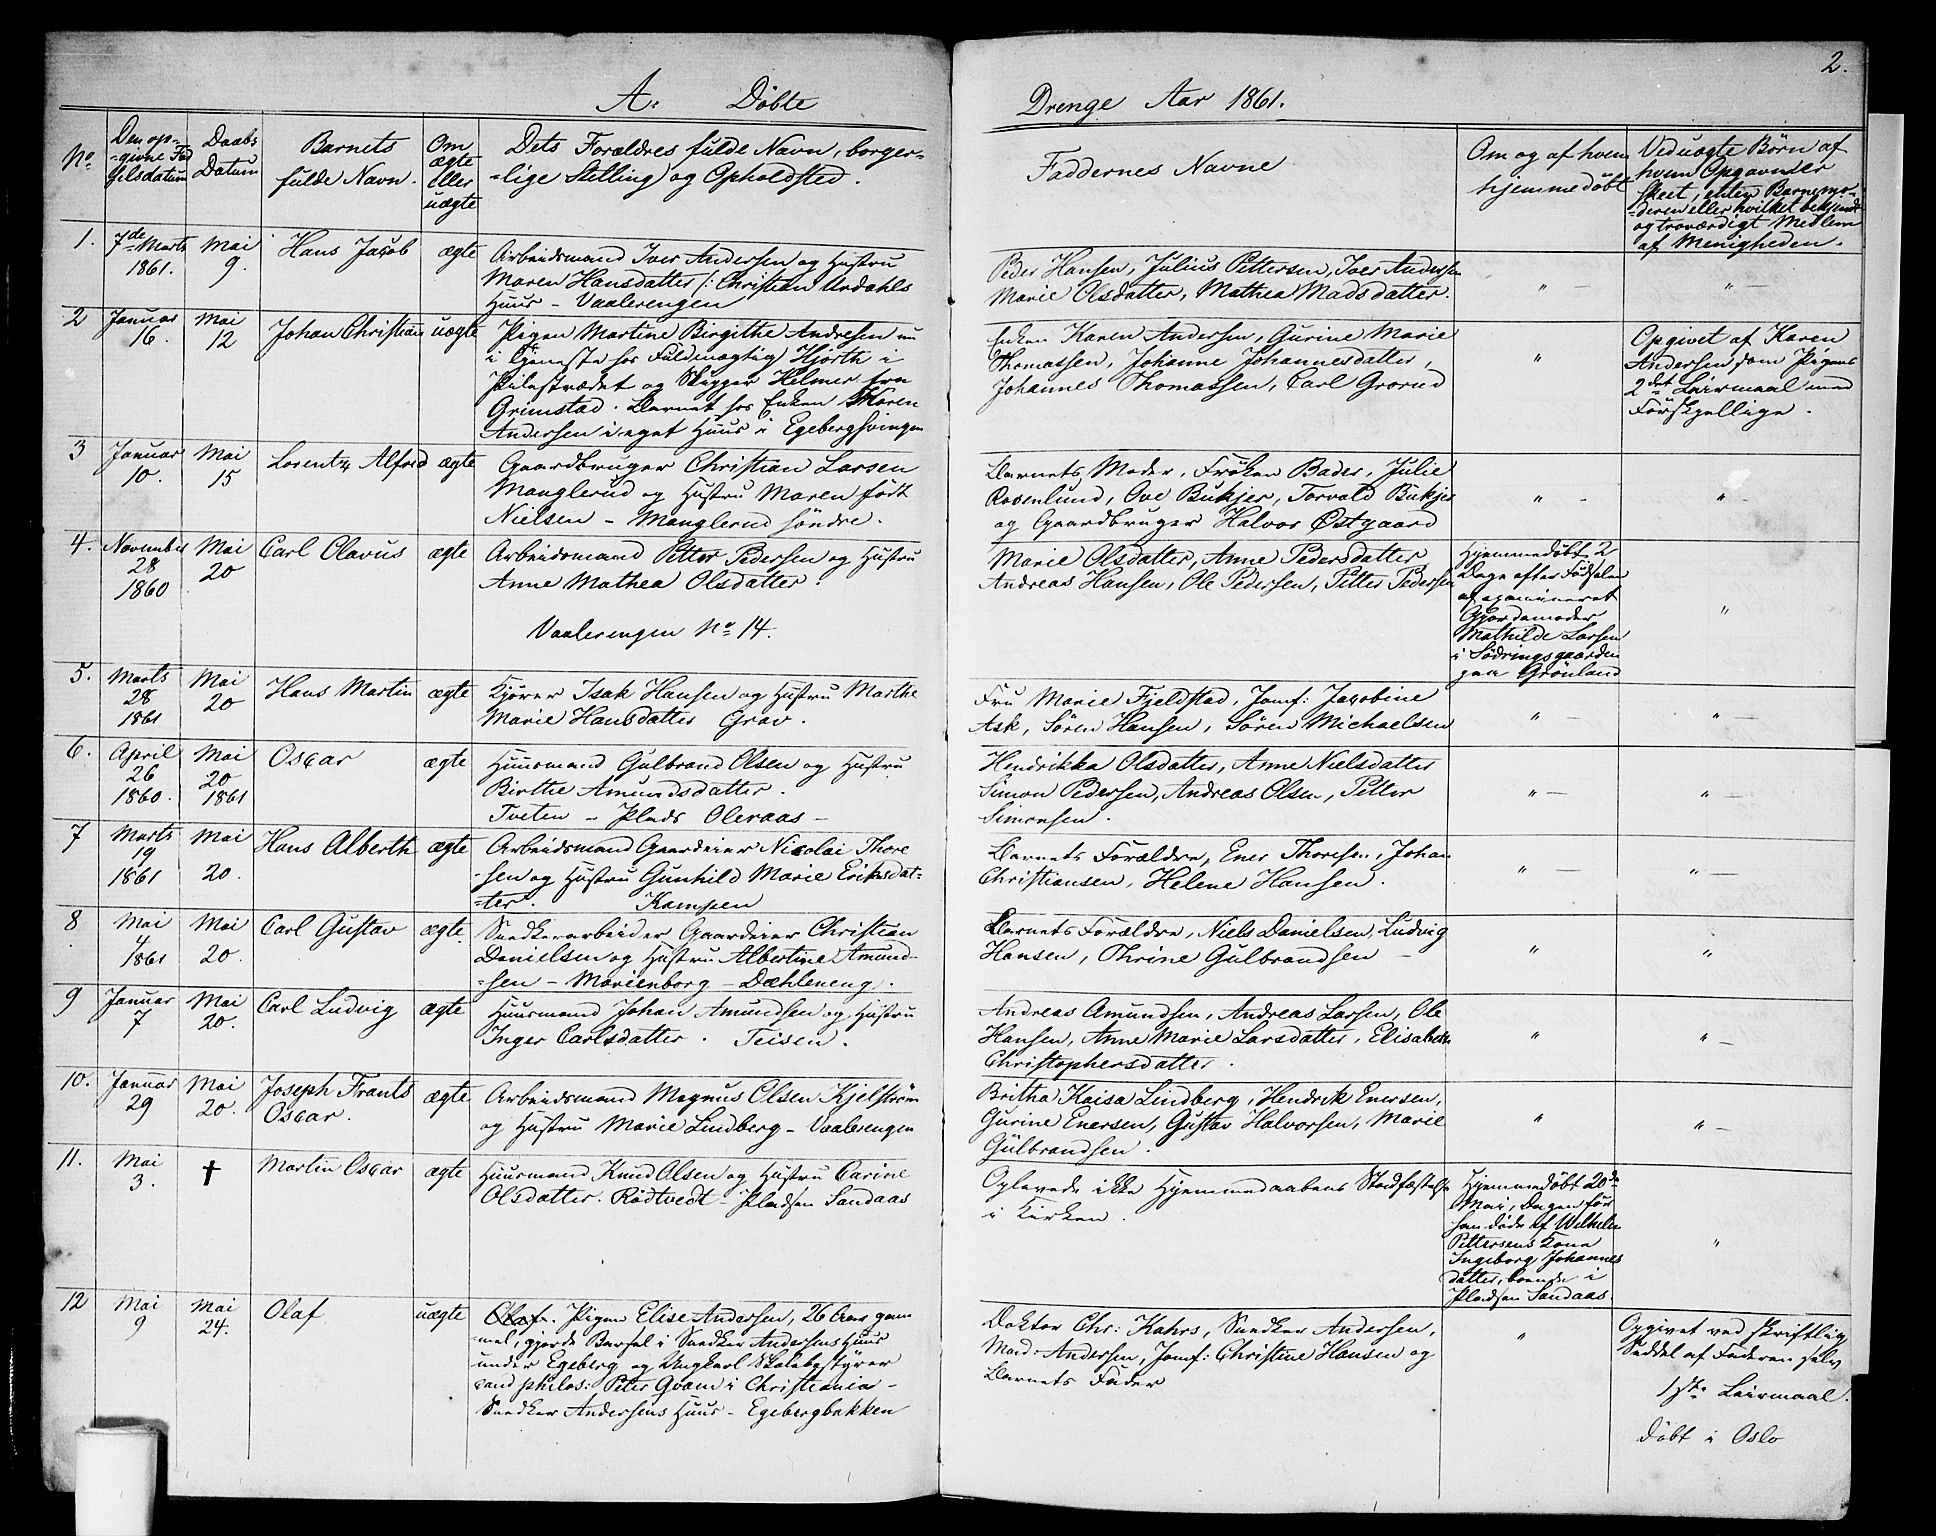 2.
A. Döbte
Drenge Aar 1861.
No.
Den op-
-givne Fød
selsdatum
Daabs
Datum
Barnets
fulde Navn.
Om
ægte
eller
uægte
Dets Forældres fulde Navn, borger-
-lige Stilling og Opholdsted.
Faddernes Navne
Om og af hvem
hjemmedöbt
Ved uægte Børn af
hvem Opgavnder
skeet, enten Barnemo-
-deren eller hvilket bekjendt
og troværdigt Medlem
af Menigheden.
1.
7de Marts
1861.
Mai
9.
Hans Jacob
ægte
Arbeidsmand Iver Andersen og Hustru
Maren Hansdatter /: Christian Ardahls
Huus – Vaalerengen
Peder Hansen, Julius Pettersen, Iver Andersen
Marie Olsdatter, Mathea Madsdatter.
" —
" —
2
Januar
16.
Mai
12
Johan Christian
uægte
Pigen Martine Birgithe Andresen nu
i Tjeneste hos Fuldmægtig Hjorth i
Pilestrædet og Skipper Helmer fra
Grimstad. Barnet hos Enken Karen
Andersen i eget Huus i Egebergsvingen
Enken Karen Andersen, Gurine Marie
Thomassen, Johanne Johannesdatter,
Johannes Thomassen, Carl Grorud
"
Opgivet af Karen
Andersen som Pigens
2det Leiermaal med
Forskjellige.
3
Januar
10.
Mai
15
Lorentz Alfred
ægte
Gaardbruger Christian Larsen
Manglerud og Hustru Maren født
Nielsen – Manglerud söndre.
Barnets Moder, Frøken Bader, Julie
Rosenlund, Ove Bukjer, Torvald Bukjer
og Gaardbruger Halvor Østgaard
" -
" -
4.
November
28
1860
Mai
20
Carl Olavus
ægte
Arbeidsmand Petter Pedersen og Hustru
Anne Mathea Olsdatter.
Vaalerengen No 14.
Marie Olsdatter, Anne Pedersdatter
Andreas Hansen, Ole Pedersen, Petter Pedersen
Hjemmedöbt 2
Dage efter Födselen
af examineret
Gjordemoder
Mathilde Larsen
i Södringsgaarden
paa Grönland
"
5.
Marts
28
1861
Mai
20
Hans Martin
ægte
Kjører Isak Hansen og Hustru Marthe
Marie Hansdatter Grav.
Fru Marie Fjeldstad, Jomf: Jacobine
Ask, Sören Hansen, Sören Michaelsen
" —
" —
6.
April
26
1860.
Mai
20
1861
Oscar
ægte
Huusmand Gulbrand Olsen og Hustru
Birthe Amundsdatter.
Tveten – Plads Oleraas –
Hendrikka Olsdatter, Anne Nielsdatter
Simon Pedersen, Andreas Olsen, Petter
Simonsen.
" —
" —
7
Marts
19
1861
Mai
20.
Hans Alberth
ægte
Arbeidsmand Gaardeier Nicolai Thore
-sen og Hustru Gunhild Marie Eriksdat-
-ter. Kampen
Barnets Forældre, Ener Thoresen, Johan
Christiansen, Helene Hansen.
" —
" —
8
Mai
4
1861
Mai
20.
Carl Gustav
ægte.
Snedkerarbeider Gaardeier Christian
Danielsen og Hustru Albertine Amund-
-sen – Marienborg – Dæhleneng.
Barnets Forældre, Niels Danielsen, Ludvig
Hansen, Thrine Gulbrandsen –
"
"
9
Januar
7
Mai
20.
Carl Ludvig
ægte
Huusmand Johan Amundsen og Hustru
Inger Carlsdatter. Teisen.
Andreas Amundsen, Andreas Larsen, Ole
Hansen, Anne Marie Larsdatter, Elisabeth
Christophersdatter.
"
" —
10.
Januar
29
Mai
20.
Joseph Frants
Oscar.
ægte
Arbeidsmand Magnus Olsen Kjelström
og Hustru Marie Lindberg – Vaalerengen
Britha Kaisa Lindberg, Hendrik Enersen,
Gurine Enersen, Gustav Halvorsen, Marie
Gulbrandsen.
"
" —
11.
Mai
3.
†
Martin Oscar
ægte
Huusmand Knud Olsen og Hustru Carine
Olsdatter. Rödtvedt – Pladsen Sandaas
Oplevede ikke Hjemmedaabens Stadfæstelse
i Kirken.
Hjemmedöbt 20de
Mai, Dagen før
han döde af Wilhelm
Pettersens Kone
Ingeborg Johannes
datter, boende i
Pladsen Sandaas.
"
12
Mai
9
Mai
24.
Olaf
uægte
Olaf. Pigen Elise Andersen, 26 Aar gam
-mel, gjorde Barsel i Snedker Andersens Huus
under Egeberg og Ungkarl Skolebestyrer
cand philos: Peter Qvam i Christiania –
Snedker Andersens Huus – Egebergbakken
Doktor Chr: Kahrs, Snedker Andersen,
Mad: Andersen, Jomf: Christine Hansen og
Barnets Fader
"
Opgivet ved skriftlig
Seddel af Faderen selv
1ste Leiermaal.
Döbt i Oslo